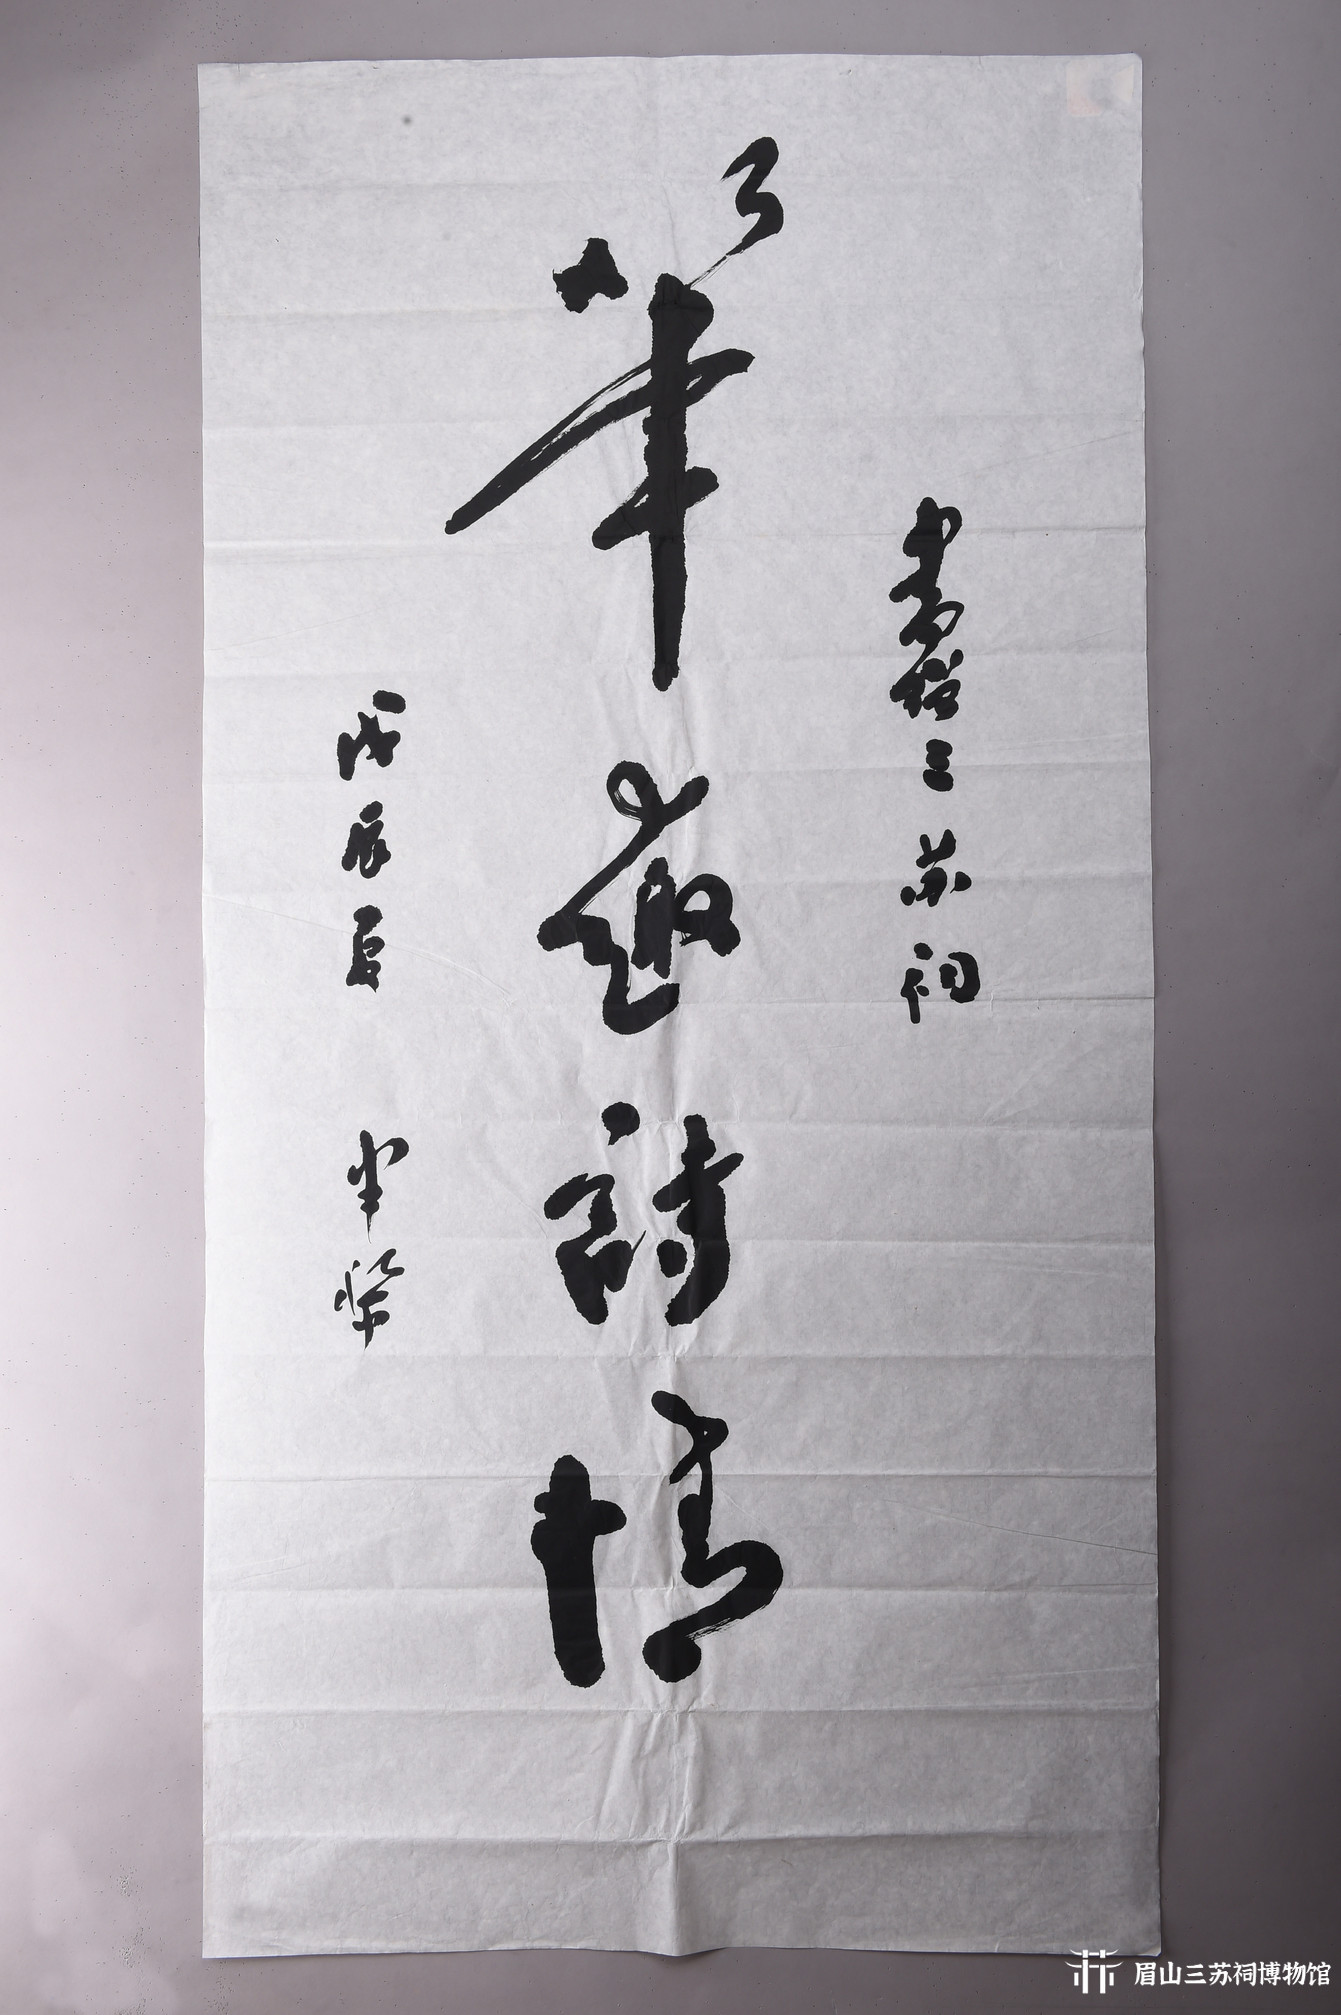 書贈三苏祠
筆趣詩情
戊辰夏 半
眉山三苏祠博物馆